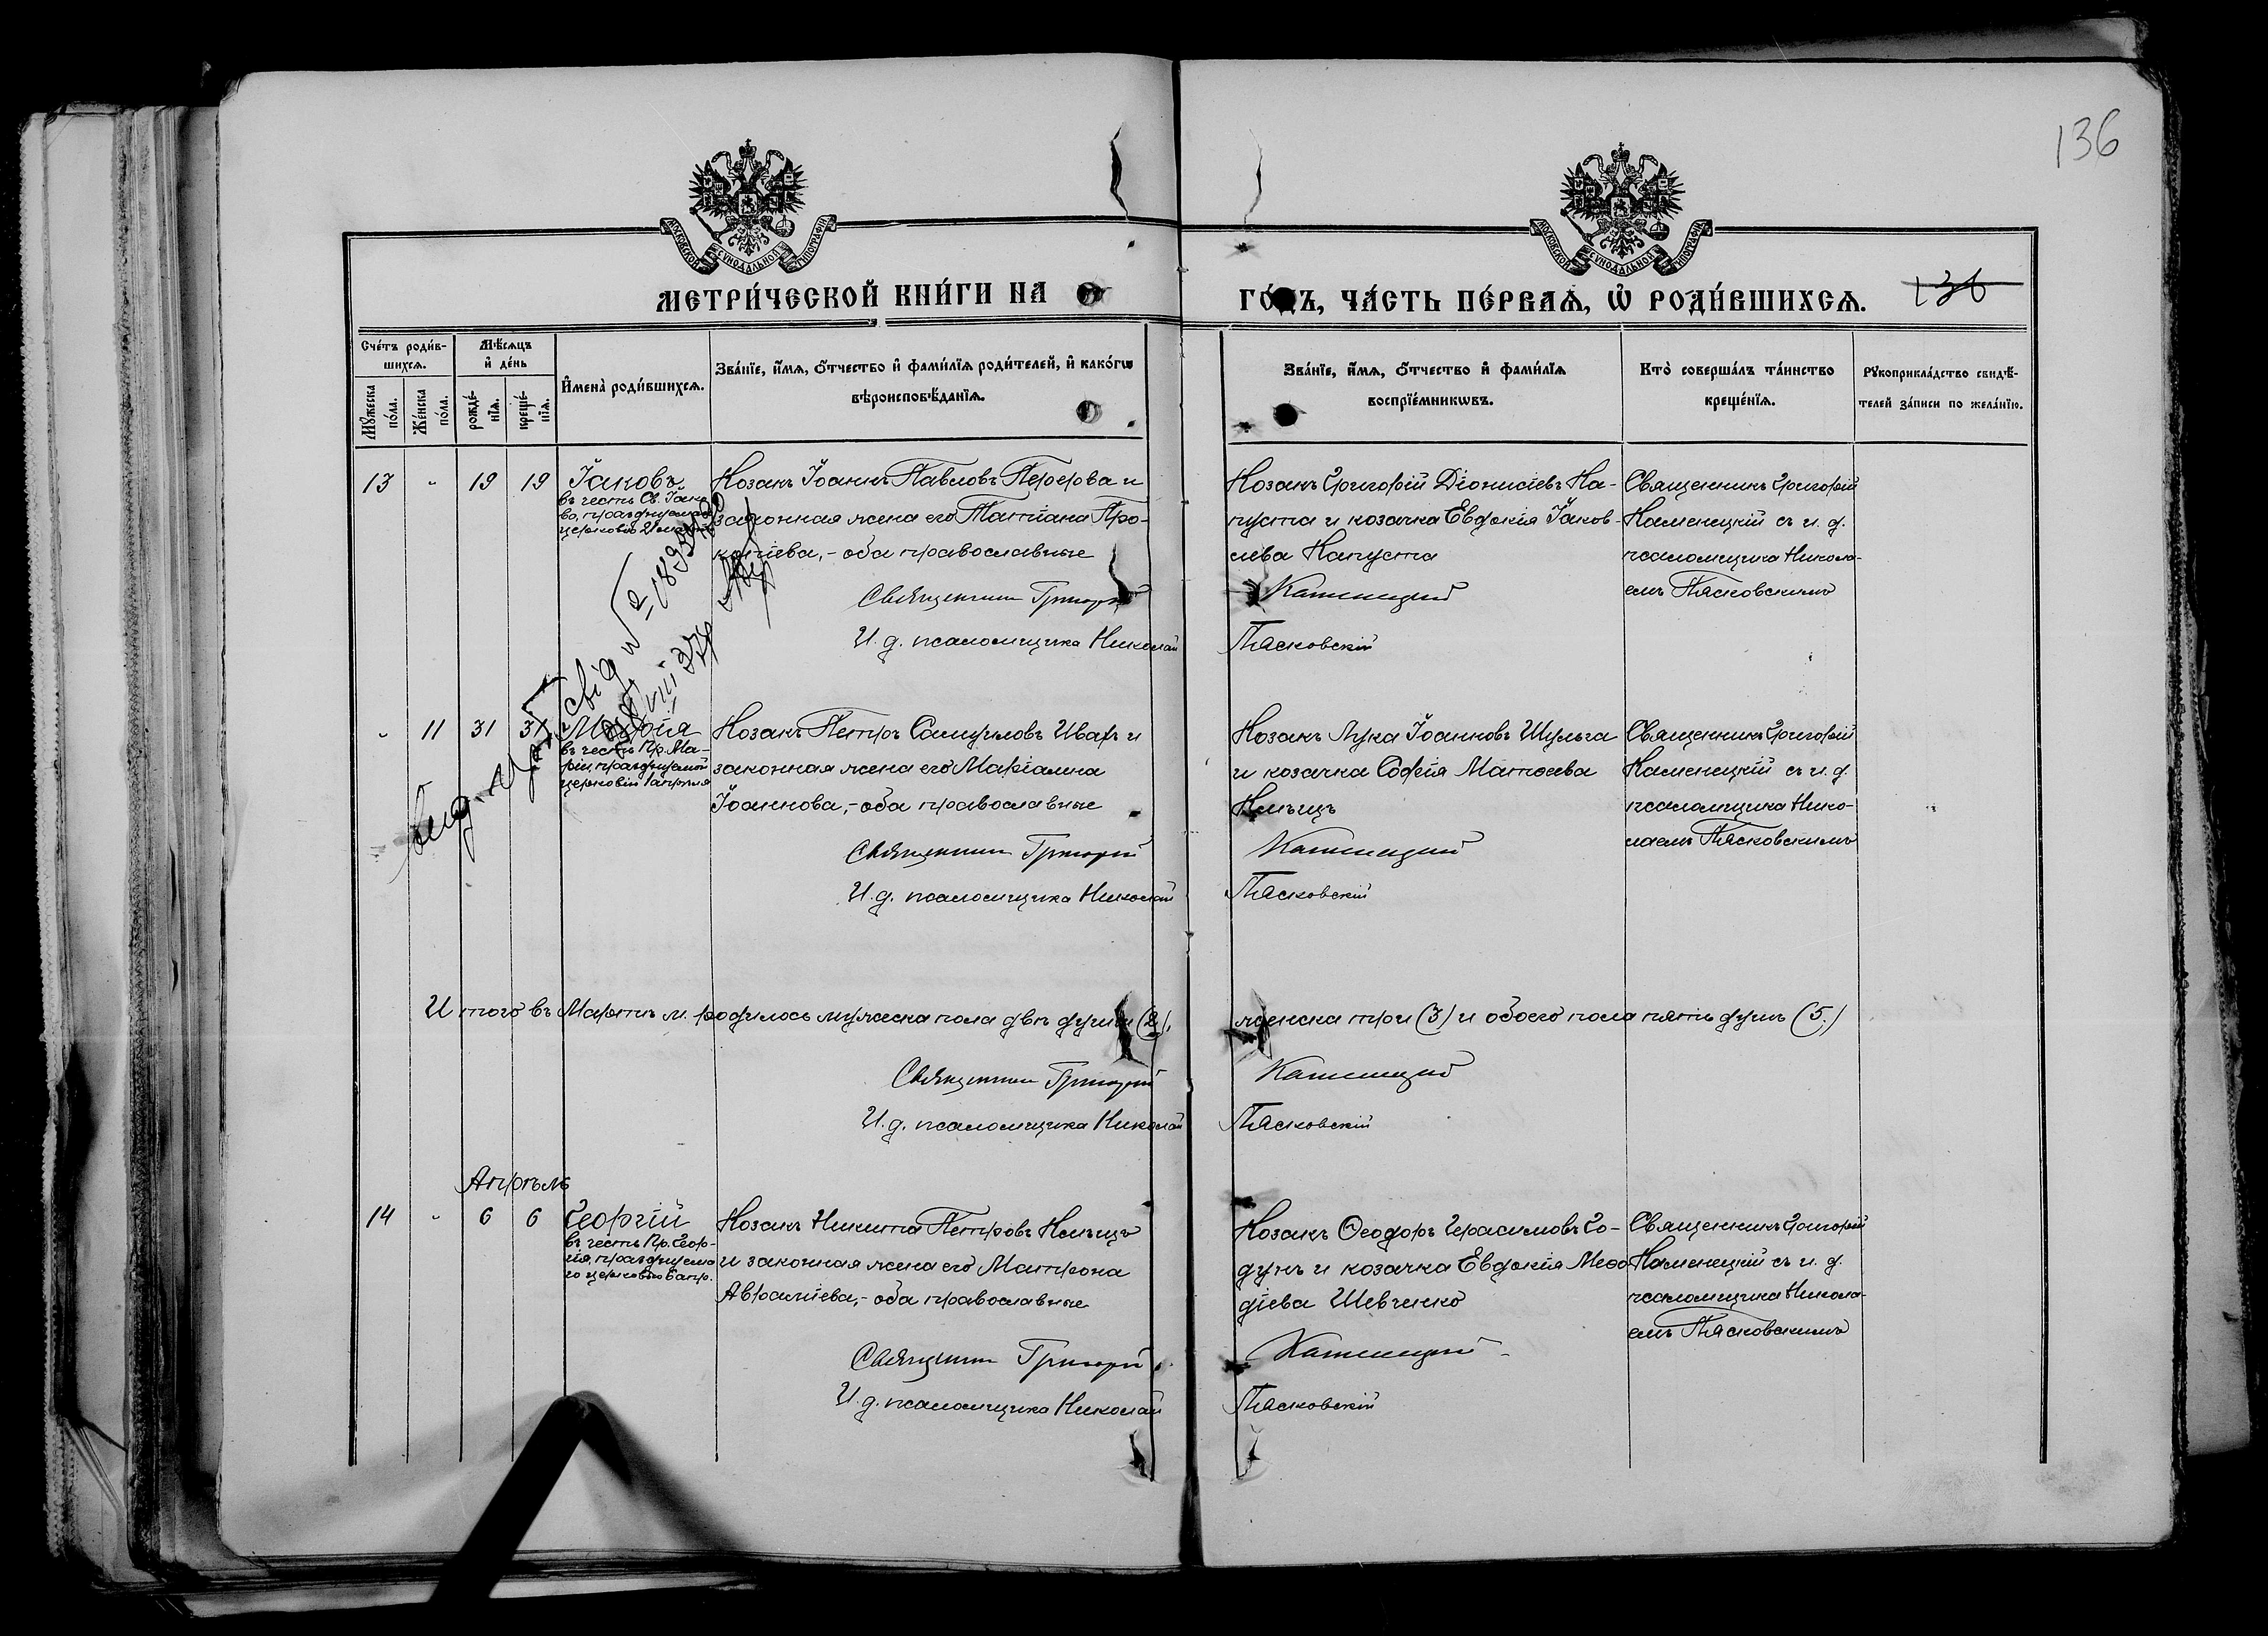 136
МОСКОВСКОЙ СУНОДАЛЬНОЙ ТИПОГРАФІИ
МОСКОВСКОЙ СУНОДАЛЬНОЙ ТИПОГРАФІИ
МЕТРИ́ЧЕСКОЙ КНИ́ГИ НА
ГО́ДЪ, ЧА́СТЬ ПЕ́РВАѦ, Ѡ҆ РОДИ́ВШИХСѦ.
136
Сче́тъ роди́в-
шихсѧ.
Мꙋ́жеска
по́ла.
Же́нска
по́ла.
Мѣ́сѧцъ
и҆ де́нь
рожде́-
нїѧ.
креще́-
нїѧ.
И҆мена̀ роди́вшихсѧ.
Зва́нїе, и҆́мѧ, ѻ҆́тчество и҆ фами́лїѧ роди́телей, и҆ како́гѡ
вѣроисповѣ́данїѧ.
Зва́нїе, и҆́мѧ, ѻ҆́тчество и҆ фами́лїѧ
воспрїе́мникѡвъ.
Кто̀ соверша́лъ та́инство
креще́нїѧ.
Рꙋкоприкла́дство свидѣ́-
телей за́писи по жела́нїю.
13 " 19 19 Іаковъ
въ честь Св. Іако-
ва, празднуемаго
церковію 21 марта
Козакъ Іоаннъ Павловъ Перерва и
законная жена его Татіана Про-
копіева,- оба православные
Священникъ Григорій
И. д. псаломщика Николай
Козакъ Григорій Діонисіевъ Ка-
пуста и козачка Евдокія Іаков-
лева Капуста
Каменецкій
Пясковскій
Священникъ Григорій
Каменецкій съ и. д.
псаломщика Никола-
емъ Пясковскимъ
" 11 31 31 Марія
въ честь Пр. Ма-
ріи, празднуемой
церковію 1 апрѣля
Козакъ Петръ Самуиловъ Ивахъ и
законная жена его Маріанна
Іоаннова,- оба православные
Священникъ Григорій
И. д. псаломщика Николай
Козакъ Лука Іоанновъ Шульга
и козачка Софія Матѳеева
Кмѣцъ
Каменецкій
Пясковскій
Священникъ Григорій
Каменецкій съ и. д.
псаломщика Нико-
лаемъ Пясковскимъ
Итого въ Мартѣ м. родилось мужеска пола двѣ души (2),
женска три (3) и обоего пола пять душъ (5.)
Священникъ Григорій
И. д. псаломщика Николай
Каменецкій
Пясковскій
Апрѣль
14 " 6 6 Георгій
въ честь Пр. Геор-
гія, празднуема-
го церковію 6 апр.
Козакъ Никита Петровъ Кмѣцъ
и законная жена его Матрона
Авраміева,- оба православные
Священникъ Григорій
И. д. псаломщика Николай
Козакъ Ѳеодоръ Герасимовъ Го-
дунъ и козачка Евдокія Меѳо-
діева Шевченко
Каменецкій
Пясковскій
Священникъ Григорій
Каменецкій съ и. д.
псаломщика Никола-
емъ Пясковскимъ